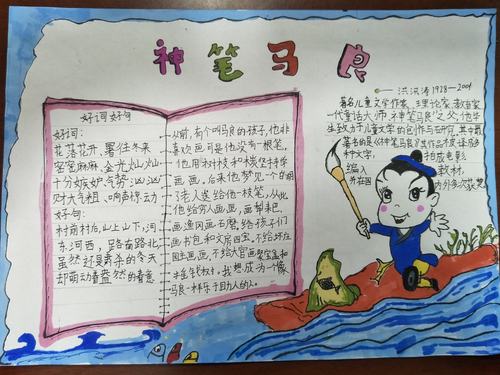 神笔马良
好词好句
好词:
花落花开、暑往冬来
密密麻麻、金光灿灿
十分嫉妒、气势汹汹
财大气粗、响声惊动
好句:
村前村后,山上山下,河
东河西,路南路北
虽然还是肃杀的冬天
却萌动着盎然的春意
从前,有个叫马良的孩子,他非
常喜欢画可是他没有一根笔,
他用树枝和坚持学
画画,后来他梦见一个白胡
子老人送给他一枝笔,从此
他给穷人画画,画犁耙,
画渔网画石磨,给孩子们
画书包和文房四宝,不给坏庄
园主画画,不给大官画聚宝盆和
我想成为一个像
马良一样乐于助人的人。
—— 洪汛涛 1928—2001
著名儿童文学作家、理论家、教育家
一代童话大师,神笔马良之父,他毕
生致力于儿童文学的创作与研究。其中最
著名的是《神笔马良》,作品被译成多
种文字, 拍成电影
编入 教材,
并在国内外多次获奖